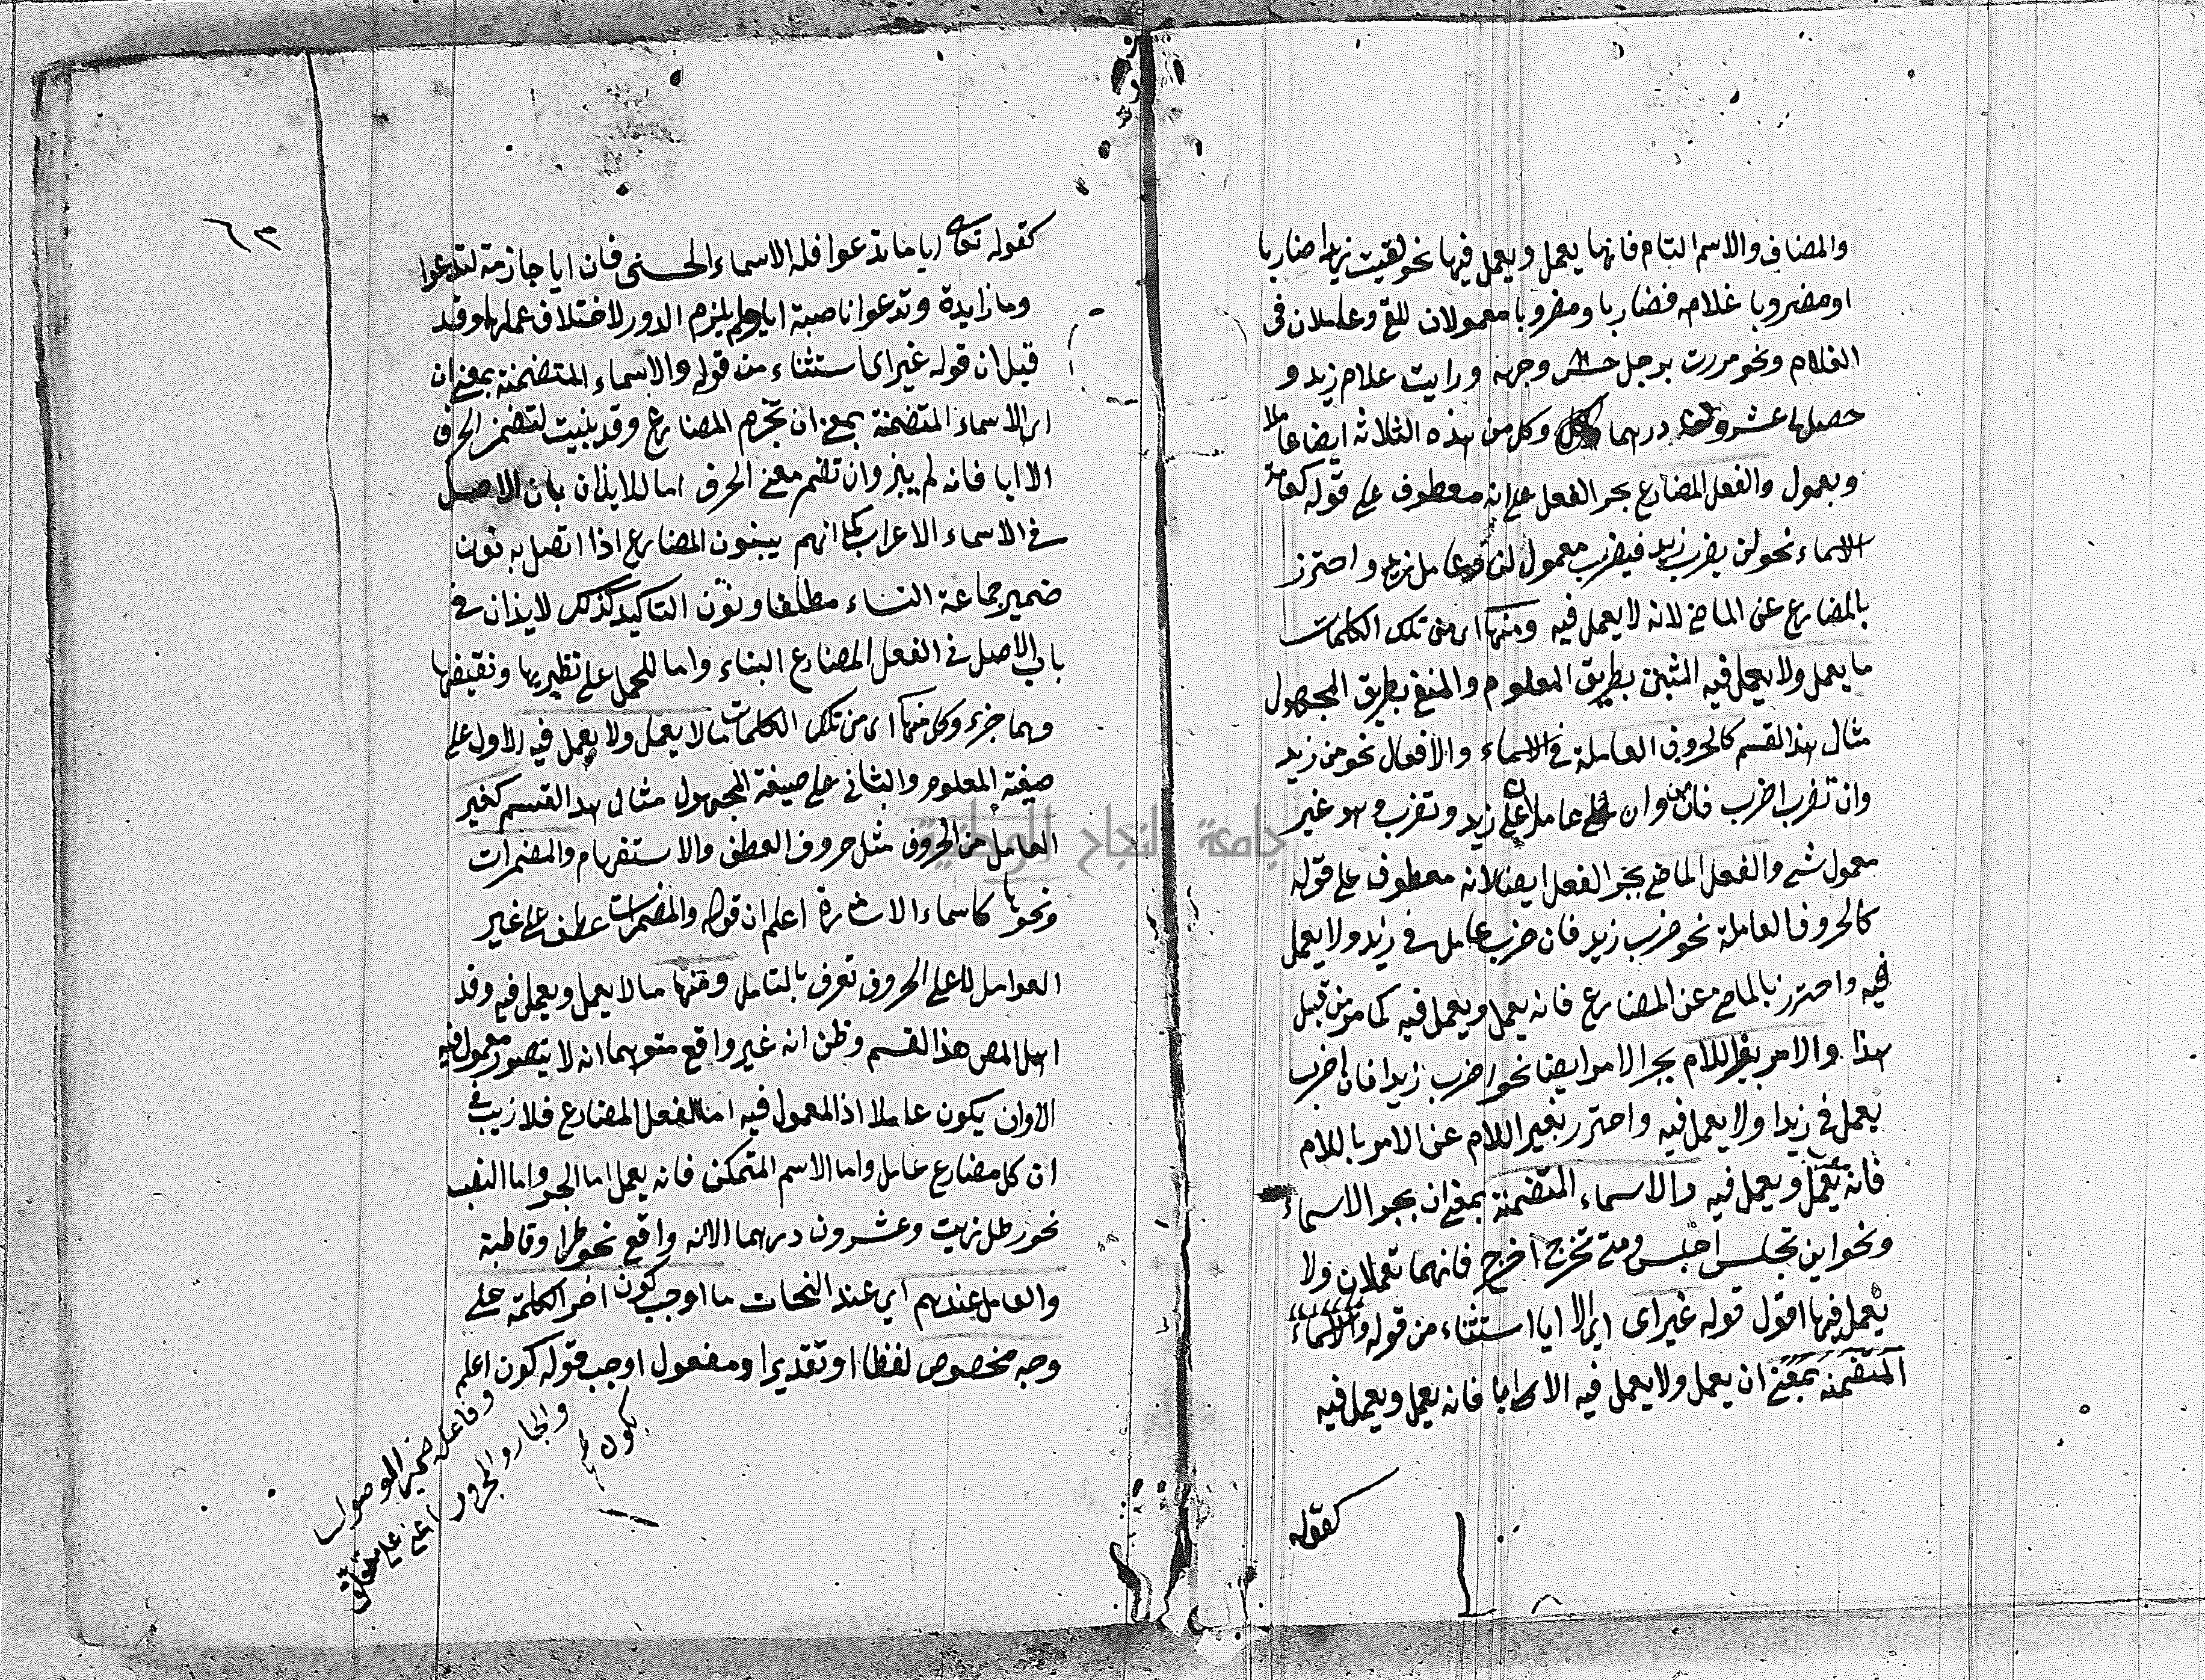 والمضاف والاسم التام فانها يعمل ويعمل فيها نحو لقيت زيدا ضاربا
او مضروبا غلامه فضاربا ومضروبا معمولان للقي وعاملان فى
الغلام ونحو مررت برجل حسن وجهه ورايت غلام زيد و
حصل لى عشرون درهما وكل من هذه الثلاثة ايضا عاملا
ومعمول والفعل المضارع بجر الفعل على انه معطوف على قوله كعامة
الاسماء نحو لن يضرب زيد فيضرب معمول لن وعامل زيد واحترز
بالمضارع عن الماضي لانه لا يعمل فيه ومنها اى من تلك الكلمات
ما يعمل ولا يعمل فيه المثبت بطريق المعلوم والمنفي بطريق المجهول
مثال هذا القسم كالحروف العاملة في الاسماء والافعال نحو من زيد
وان تضرب اضرب فان من وان عاملان في زيد وتضرب وهو غير
معمول شيء والفعل الماضي بجر الفعل ايضا لانه معطوف على قوله
كالحروف العاملة نحو ضرب زيد فان ضرب عامل في زيد ولا يعمل
فيه واحترز بالماضي عن المضارع فانه يعمل ويعمل فيه كما مر من قبل
هذا والامر بغير اللام بجر الامر ايضا نحو اضرب زيدا فان اضرب
يعمل في زيدا ولا يعمل فيه واحترز بغير اللام عن الامر باللام
فانه يعمل ويعمل فيه والاسماء المتضمنة بمعنى ان بجر الاسماء
ونحو اين تجلس اجلس ومتى تخرج اخرج فانهما تعملان ولا
يعمل فيها اقول قوله غير اى اى الا ايا استثناء من قوله والاسماء
المتضمنة بمعنى ان يعمل ولا يعمل فيه الا ايا فانه يعمل ويعمل فيه
كقوله
٦٣
كقوله تعالى ايا ما تدعوا فله الاسماء الحسنى فان ايا جازمة لتدعوا
وما زايدة وتدعوا ناصبة ايا ولم يلزم الدور لاختلاف عملها وقد
قيل ان قوله غير اى استثناء من قوله والاسماء المتضمنة بمعنى ان
اى الاسماء المتضمنة بمعنى ان تجزم المضارع وقد بنيت لتضمن الحرف
الا ايا فانه لم يبن وان تضمن معنى الحرف اما للايذان بان الاصل
في الاسماء الاعراب كما انهم يبنون المضارع اذا اتصل به نون
ضمير جماعة النساء مطلقا ونون التاكيد كذلك لايذان في
باب الاصل في الفعل المضارع البناء واما للحمل على نظيرها ونقيضها
وهما جزء وكل منها اى من تلك الكلمات ما لا يعمل ولا يعمل فيه الاول على
صيغة المعلوم والثاني على صيغة المجهول مثال هذا القسم كغير
العامل من الحروف مثل حروف العطف والاستفهام والمضمرات
ونحوها كاسماء الاشارة اعلم ان قوله والمضمرات عطف على غير
العوامل لا على الحروف تعرف بالتامل ومنها ما لا يعمل ويعمل فيه وقد
اهمل المص هذا القسم وظن انه غير واقع متوهما انه لا يتصور معمول فيه
الا وان يكون عاملا اذ المعمول فيه اما الفعل المضارع فلا ريب في
ان كل مضارع عامل واما الاسم المتمكن فانه يعمل اما الجر واما النصب
نحو رطل زيت وعشرون درهما الا انه واقع نحو طرا وقاطبة
والعامل عندهم اي عند النحات ما اوجب كون اخر الكلمة على
وجه مخصوص لفظا او تقديرا ومفعول اوجب قوله كون اعلم
وفاعله ضمير الموصول
والجار والمجرور اعني على متعلق
بكون
جامعة النجاح الوطنية